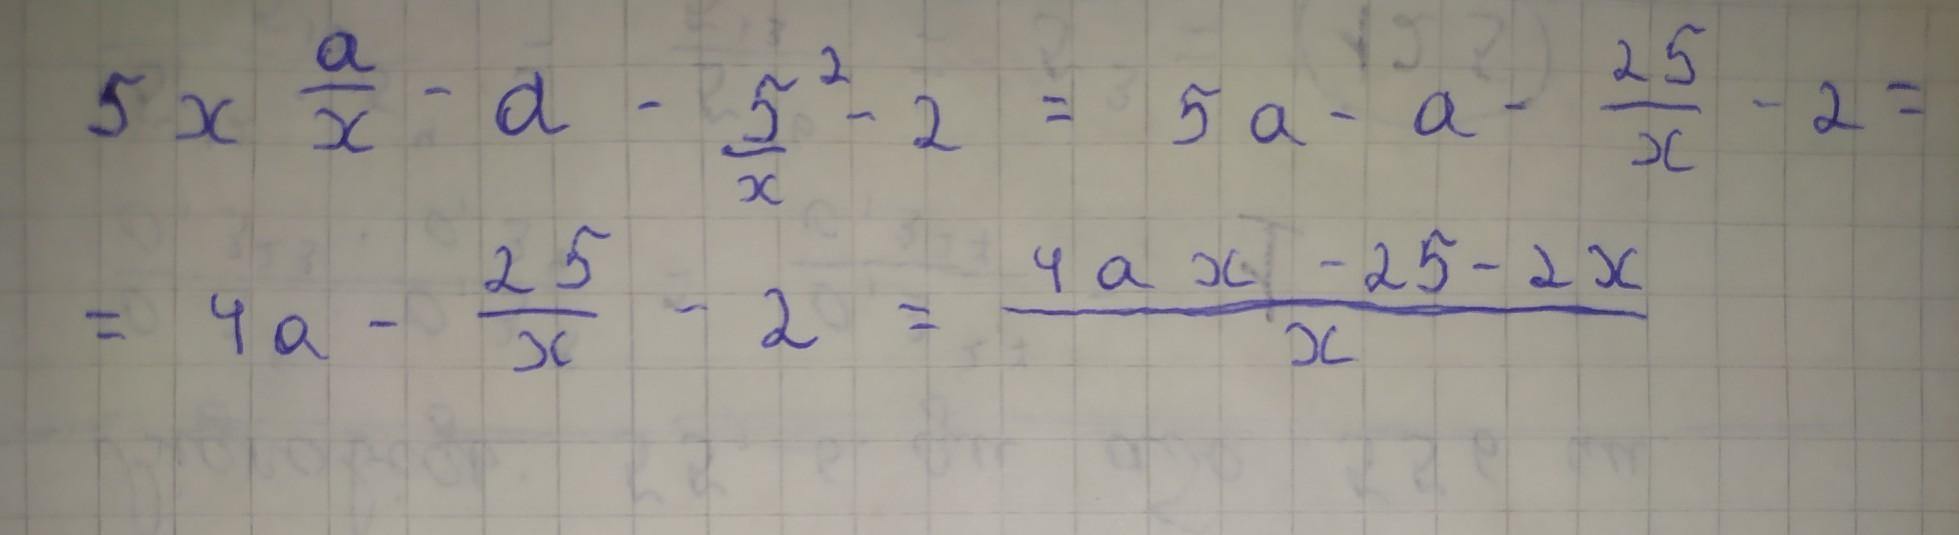 5x a/x - a - 5²/x - 2 = 5a - a - 25/x - 2 =
= 4a - 25/x - 2 = (4ax - 25 - 2x)/x